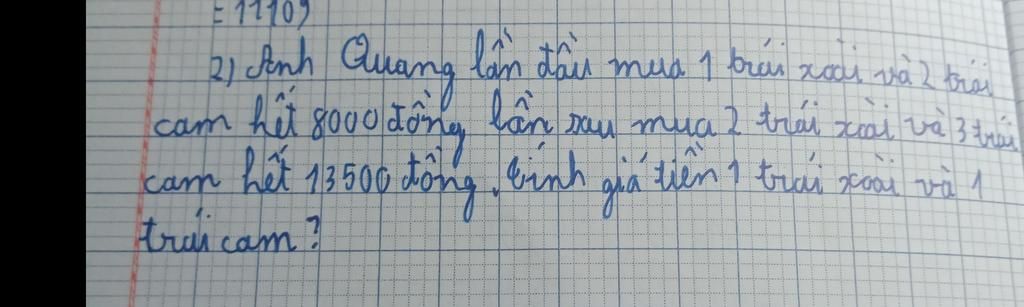 = 11109
2) Anh Quang lần đầu mua 1 trái xoài và 2 trái
cam hết 8000 đồng, lần sau mua 2 trái xoài và 3 trái
cam hết 13500 đồng. tính giá tiền 1 trái xoài và 1
trái cam?